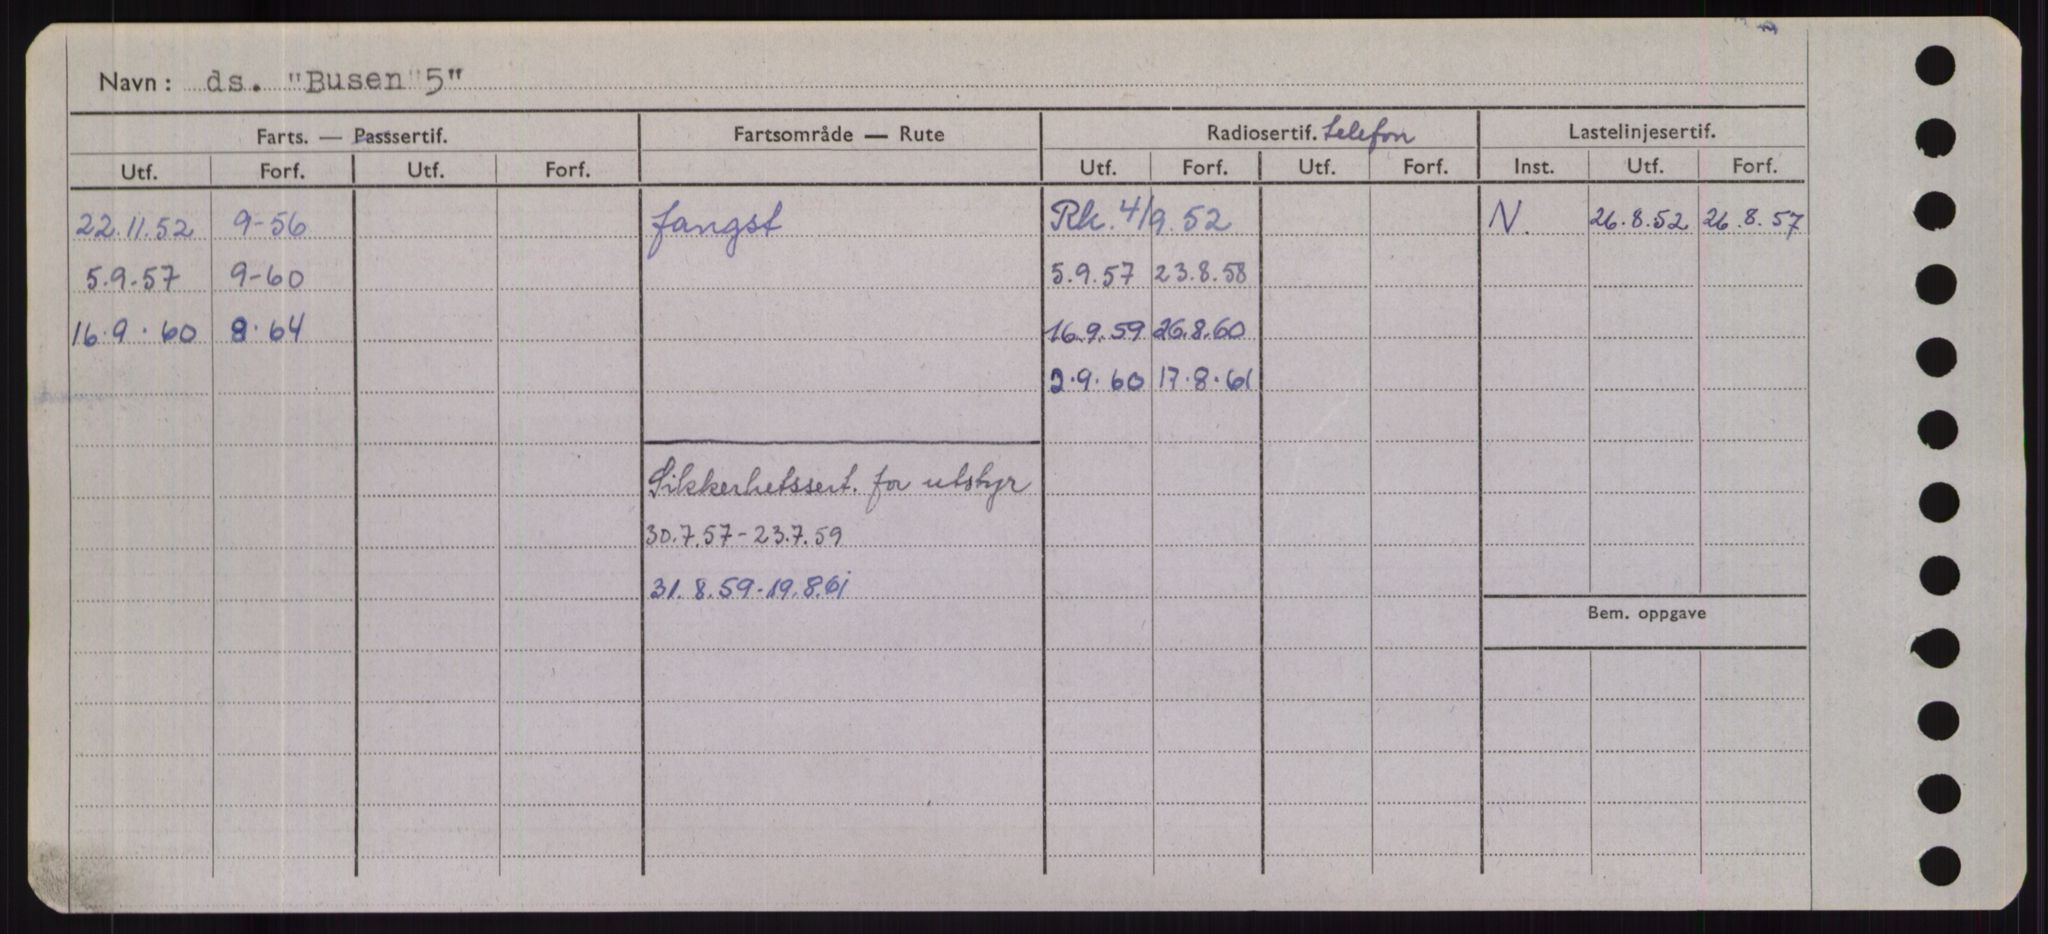 Navn: ds. "Busen"5"
Farts. — Passsertif. Fartsområde — Rute Radiosertif. telefon Lastelinjesertif.
Utf. Forf. Utf. Forf. Utf. Forf. Utf. Forf. Inst. Utf. Forf.
22.11.52 9-56 fangst Rk. 4/9.52 N. 26.8.52 26.8.57
5.9.57 9-60 5.9.57 23.8.58
16.9.60 8.64 16.9.59 26.8.60
2.9.60 17.8.61
Sikkerhetssert. for utstyr
30.7.57-23.7.59
31.8.59-19.8.61
Bem. oppgave